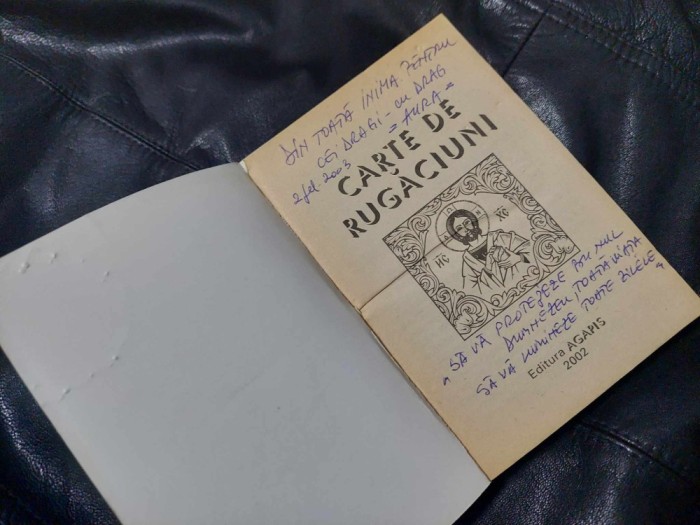 DIN TOATĂ INIMA PENTRU
CEI DRAGI - CU DRAG
= AURA =
2 feb. 2003
CARTE DE
RUGĂCIUNI
IC XC
НС ХС
„SĂ VĂ PROTEJEZE BUNUL
DUMNEZEU TOATĂ VIAȚA
SĂ VĂ LUMINEZE TOATE ZILELE"
Editura AGAPIS
2002